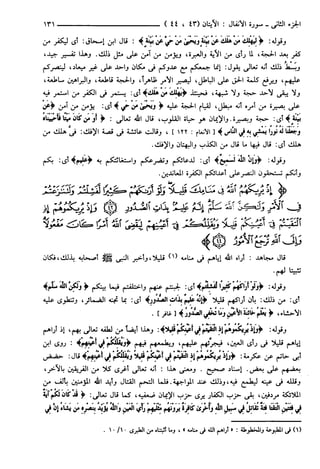 الجزء الثاني - سورة الأنفال : الآيتان (٤٣ ، ٤٤) ١٣١
وقوله: ﴿لِيَهْلِكَ مَنْ هَلَكَ عَنْ بَيِّنَةٍ وَيَحْيَىٰ مَنْ حَيَّ عَنْ بَيِّنَةٍ﴾ : قال ابن إسحاق: أي ليكفر من
كفر بعد الحجة، لما رأى من الآية والعبرة، ويؤمن من آمن على مثل ذلك. وهذا تفسير جيد،
وبسط ذلك أنه تعالى يقول: إنما جمعكم مع عدوكم في مكان واحد على غير ميعاد، لينصركم
عليهم، ويرفع كلمة الحق على الباطل، ليصير الأمر ظاهراً، والحجة قاطعة، والبراهين ساطعة،
ولا يبقى لأحد حجة ولا شبهة، فحينئذ ﴿لِيَهْلِكَ مَنْ هَلَكَ﴾ أي: يستمر في الكفر من استمر فيه
على بصيرة من أمره أنه مبطل، لقيام الحجة عليه ﴿وَيَحْيَىٰ مَنْ حَيَّ﴾ أي: يؤمن من آمن ﴿عَنْ
بَيِّنَةٍ﴾ أي: حجة وبصيرة. والإيمان هو حياة القلوب، قال الله تعالى : ﴿أَوَ مَن كَانَ مَيْتًا فَأَحْيَيْنَاهُ
وَجَعَلْنَا لَهُ نُورًا يَمْشِي بِهِ فِي النَّاسِ﴾ [الأنعام : ١٢٢] ، وقالت عائشة في قصة الإفك: فهلك من
هلك أي: قال فيها ما قال من الكذب والبهتان والإفك.
وقوله: ﴿وَإِنَّ اللَّهَ لَسَمِيعٌ﴾ أي: لدعائكم وتضرعكم واستغاثتكم به ﴿عَلِيمٌ﴾ أي: بكم
وأنكم تستحقون النصر على أعدائكم الكفرة المعاندين.
﴿إِذْ يُرِيكَهُمُ اللَّهُ فِي مَنَامِكَ قَلِيلًا وَلَوْ أَرَاكَهُمْ كَثِيرًا لَفَشِلْتُمْ
وَلَتَنَازَعْتُمْ فِي الْأَمْرِ وَلَكِنَّ اللَّهَ سَلَّمَ إِنَّهُ عَلِيمٌ بِذَاتِ الصُّدُورِ ﴿٤٣﴾ وَإِذْ يُرِيكُمُوهُمْ إِذِ
الْتَقَيْتُمْ فِي أَعْيُنِكُمْ قَلِيلًا وَيُقَلِّلُكُمْ فِي أَعْيُنِهِمْ لِيَقْضِيَ اللَّهُ أَمْرًا كَانَ مَفْعُولًا
وَإِلَى اللَّهِ تُرْجَعُ الْأُمُورُ ﴿٤٤﴾﴾
قال مجاهد : أراه الله إياهم في منامه (١) قليلا، وأخبر النبي ﷺ أصحابه بذلك، فكان
تثبيتا لهم.
وقوله: ﴿وَلَوْ أَرَاكَهُمْ كَثِيرًا لَفَشِلْتُمْ﴾ أي: لجبنتم عنهم واختلفتم فيما بينكم ﴿وَلَكِنَّ اللَّهَ سَلَّمَ﴾
أي: من ذلك: بأن أراكهم قليلا ﴿إِنَّهُ عَلِيمٌ بِذَاتِ الصُّدُورِ﴾ أي: بما تجنه الضمائر، وتنطوي عليه
الأحشاء، ﴿يَعْلَمُ خَائِنَةَ الْأَعْيُنِ وَمَا تُخْفِي الصُّدُورُ﴾ [غافر].
وقوله: ﴿وَإِذْ يُرِيكُمُوهُمْ إِذِ الْتَقَيْتُمْ فِي أَعْيُنِكُمْ قَلِيلًا﴾: وهذا أيضاً من لطفه تعالى بهم، إذ أراهم
إياهم قليلا في رأي العين، فيجرؤهم عليهم، ويطمعهم فيهم ﴿وَيُقَلِّلُكُمْ فِي أَعْيُنِهِمْ﴾ : روى ابن
أبي حاتم عن عكرمة: ﴿وَإِذْ يُرِيكُمُوهُمْ إِذِ الْتَقَيْتُمْ فِي أَعْيُنِكُمْ قَلِيلًا وَيُقَلِّلُكُمْ فِي أَعْيُنِهِمْ﴾ قال: حضض
بعضهم على بعض. إسناد صحيح . ومعنى هذا : أنه تعالى أغرى كلا من الفريقين بالآخر،
وقلله في عينه ليطمع فيه، وذلك عند المواجهة. فلما التحم القتال وأيد الله المؤمنين بألف من
الملائكة مردفين، بقي حزب الكفار يرى حزب الإيمان ضعفيه، كما قال تعالى: ﴿قَدْ كَانَ لَكُمْ آيَةٌ
فِي فِئَتَيْنِ الْتَقَتَا فِئَةٌ تُقَاتِلُ فِي سَبِيلِ اللَّهِ وَأُخْرَىٰ كَافِرَةٌ يَرَوْنَهُم مِّثْلَيْهِمْ رَأْيَ الْعَيْنِ وَاللَّهُ يُؤَيِّدُ بِنَصْرِهِ مَن يَشَاءُ إِنَّ فِي
(١) في المطبوعة والمخطوطة : « أراهم الله في منامه » ، وما أثبتناه من الطبري ١٠/١٠ .